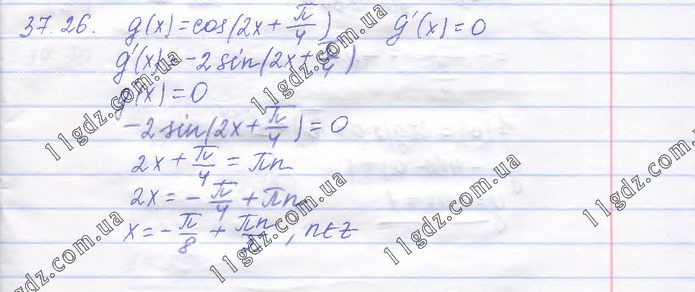 37.26. g(x) = cos(2x + π/4) g'(x) = 0
g'(x) = -2 sin(2x + π/4)
g'(x) = 0
-2 sin(2x + π/4) = 0
2x + π/4 = πn
2x = - π/4 + πn
x = - π/8 + πn/2, n∈Z
11gdz.com.ua
11gdz.com.ua
11gdz.com.ua
11gdz.com.ua
11gdz.com.ua